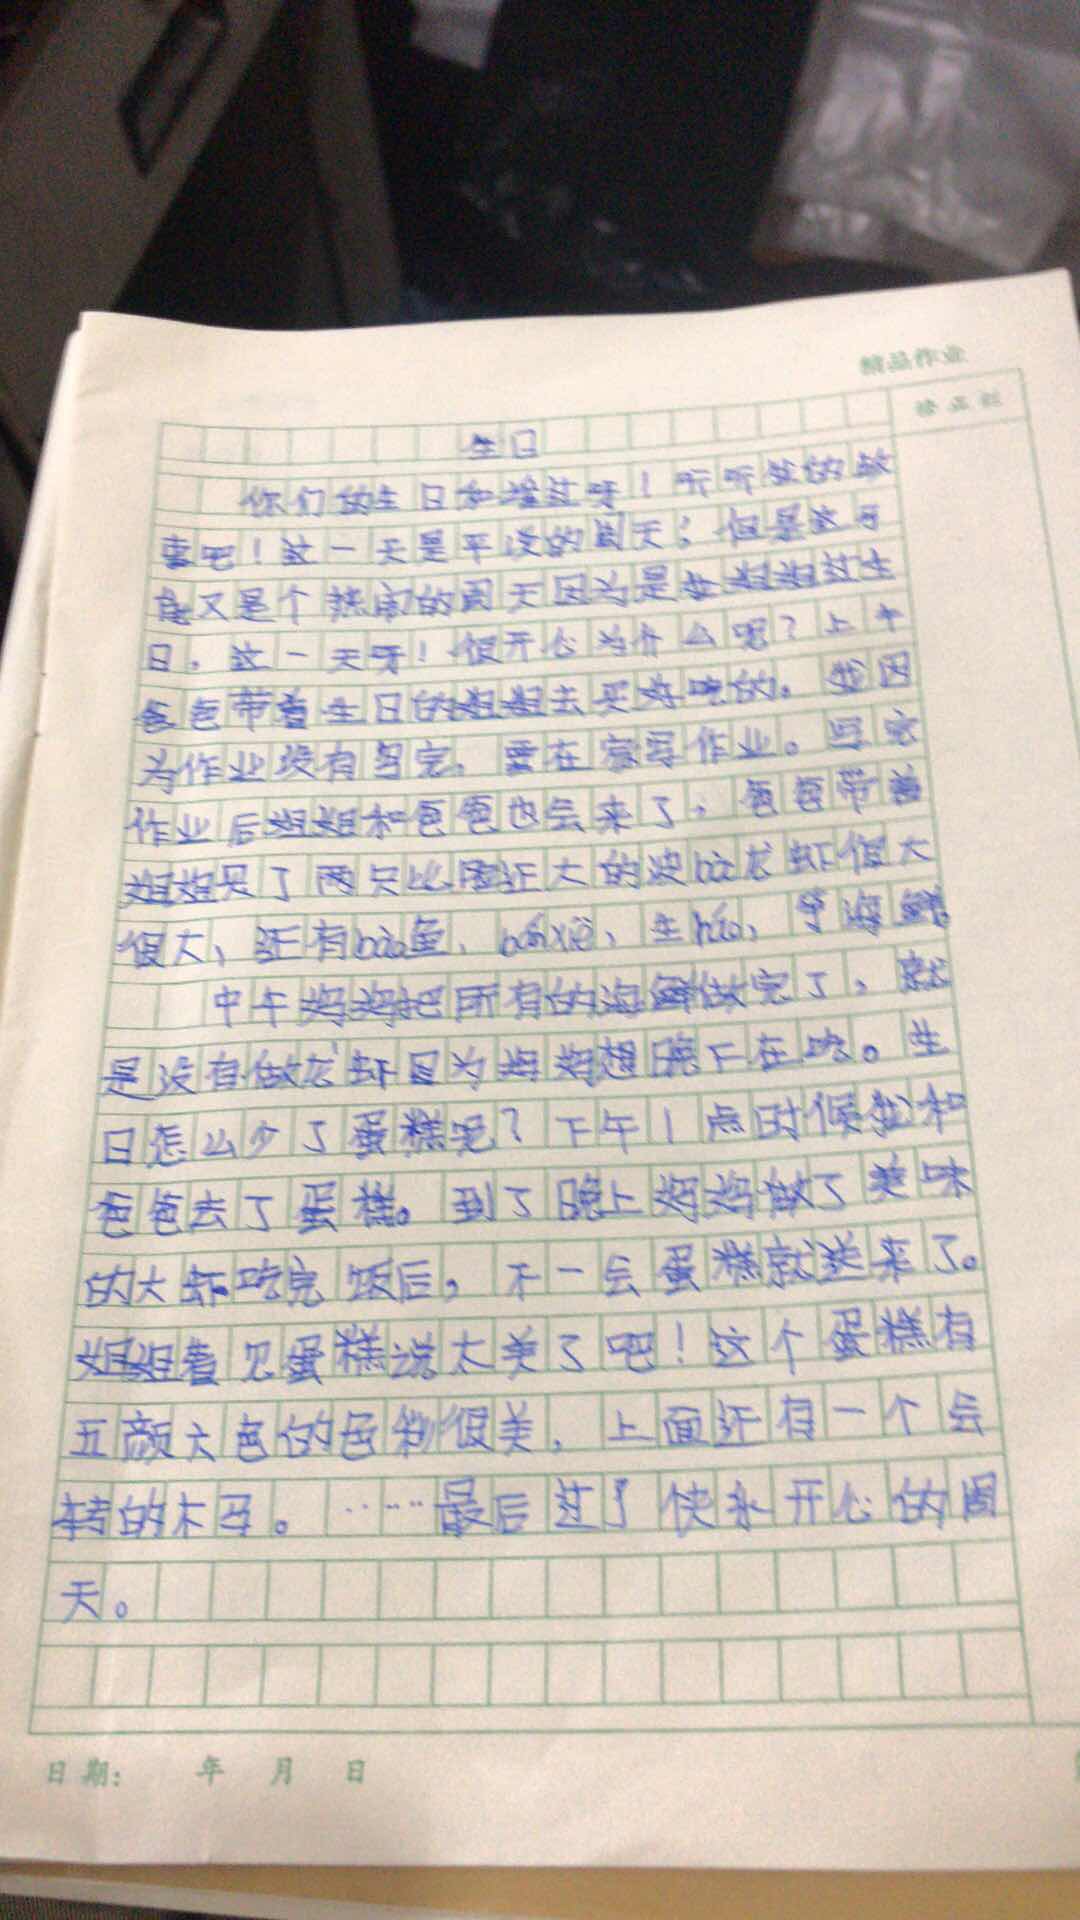 精品作业
生日
你们的生日和谁过呀！听听我的故
事吧！这一天是平淡的周天；但是这
又是个热闹的周天因为是我姐姐过生
日。这一天呀！很开心为什么呢？上午
爸爸带着生日的姐姐去买好吃的。我因
为作业没有写完，要在家写作业。写完
作业后姐姐和爸爸也会来了，爸爸带着
姐姐买了两只比 还大的波 龙虾很大
很大，还有bào鱼、 ，生háo，等海鲜
中午妈妈把所有的海鲜做完了，就
是没有做龙虾因为妈妈想晚下在吃。生
日怎么少了蛋糕呢？下午1点时候我和
爸爸去了蛋糕。到了晚上妈妈做了美味
的大虾吃完饭后，不一会蛋糕就送来了。
姐姐看见蛋糕说太美了吧！这个蛋糕有
五颜六色的色彩很美，上面还有一个会
转的木马。……最后过了快乐开心的周
天。
日期： 年 月 日